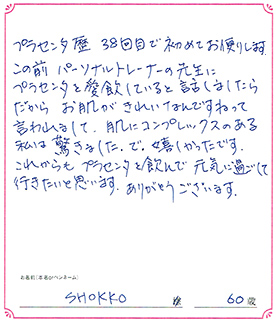 プラセンタ歴 38回目で初めてお便りします。
この前 パーソナルトレーナーの先生に
プラセンタを愛飲していると話しましたら
だから お肌がきれいなんですねって
言われまして、肌にコンプレックスのある
私は 驚きました。で、嬉しかったです。
これからも プラセンタを飲んで 元気に過ごして
行きたいと思います。ありがとうございます。
お名前(本名orペンネーム)
SHOKKO 様 60歳